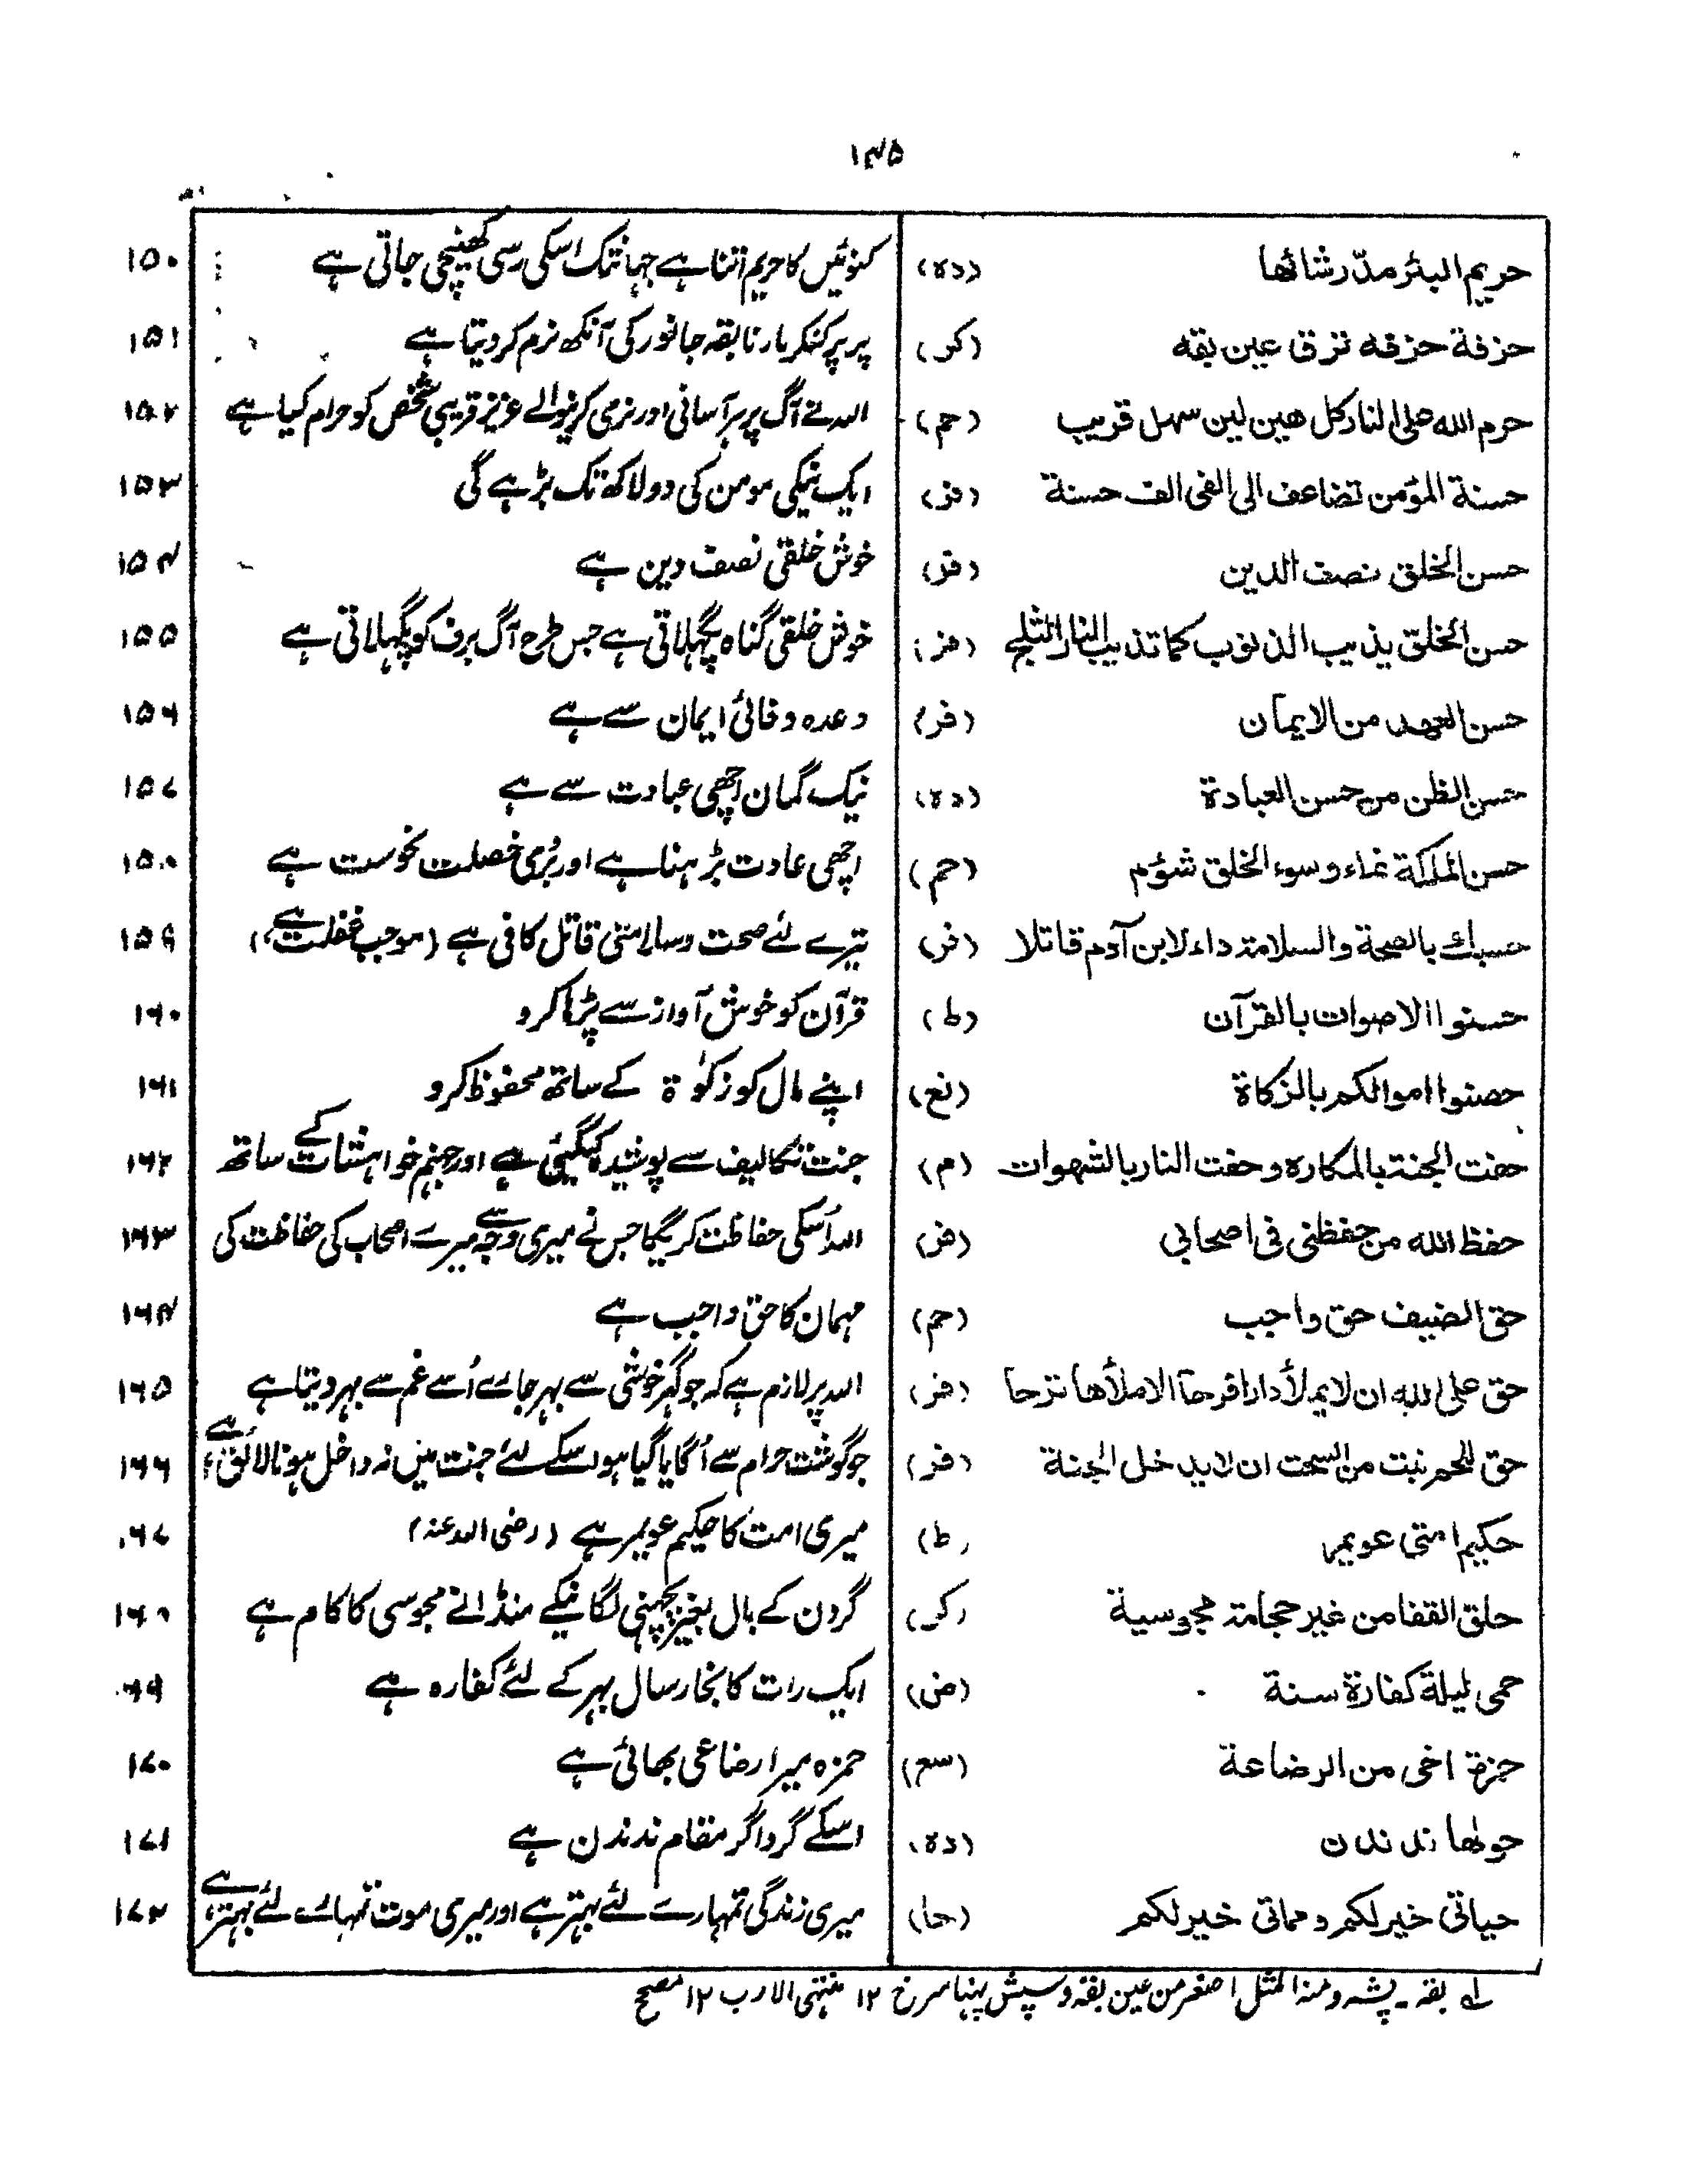 ۱۴۵
حريم البئر مدّ رشائها (دہ) کنوئیں کا حریم اتنا ہے جہانتک اسکی رسی کھینچی جاتی ہے ۱۵۰
حزقة حزقه ترق عين بقه (کر) پر پر کنکر مارنا بقہ جانور کی آنکھ نرم کر دیتا ہے ۱۵۱
حرم الله على النار كل هين لين سهل قريب (حم) اللہ نے آگ پر ہر آسانی اور نرمی کرنیوالے عزیز قریبی شخص کو حرام کیا ہے ۱۵۲
حسنة المؤمن تضاعف الى الفى الف حسنة (فر) ایک نیکی مومن کی دو لاکھ تک بڑہے گی ۱۵۳
حسن الخلق نصف الدين (فر) خوش خلقی نصف دین ہے ۱۵۴
حسن الخلق يذيب الذنوب كما تذيب النار الثلج (فر) خوش خلقی گناہ پگہلاتی ہے جس طرح آگ برف کو پگہلاتی ہے ۱۵۵
حسن العهد من الايمان (فر) وعدہ وفائی ایمان سے ہے ۱۵۶
حسن الظن من حسن العبادة (دہ) نیک گمان اچھی عبادت سے ہے ۱۵۷
حسن الملكة نماء وسوء الخلق شؤم (حم) اچھی عادت بڑہنا ہے اور بُری خصلت نحوست ہے ۱۵۸
حسبك بالصحة والسلامة داء لابن آدم قاتلا (فر) تیرے لئے صحت وسلامتی قاتل کافی ہے (موجب غفلت ہے) ۱۵۹
حسنوا الاصوات بالقرآن (ط) قرآن کو خوش آواز سے پڑہا کرو ۱۶۰
حصنوا اموالكم بالزكاة (نع) اپنے مال کو زکوٰۃ کے ساتھ محفوظ کرو ۱۶۱
حفت الجنة بالمكاره وحفت النار بالشهوات (م) جنت تکالیف سے پوشیدہ کیگئی ہے اور جہنم خواہشات کے ساتھ ۱۶۲
حفظ الله من حفظنى فى اصحابي (فر) اللہ اُسکی حفاظت کریگا جس نے میری وجہ سے میرے اصحاب کی حفاظت کی ۱۶۳
حق الضيف حق واجب (حم) مہمان کا حق واجب ہے ۱۶۴
حق على الله ان لا يملأ دارا فرحآ الا ملأها ترحا (فر) اللہ پر لازم ہے کہ جو گہر خوشی سے بہر جائے اُسے غم سے بہر دیتا ہے ۱۶۵
حق للحم نبت من السحت ان لا يدخل الجنة (فر) جو گوشت حرام سے اُگایا گیا ہو اسکے لئے جنت میں نہ داخل ہونا لائق ہے ۱۶۶
حكيم امتى عويمر (ط) میری امت کا حکیم عویمر ہے (رضی اللہ عنہ) ۱۶۷
حلق القفا من غير حجامة مجوسية (کر) گردن کے بال بغیر پچہنی لگانیکے منڈانے مجوسی کا کام ہے ۱۶۸
حمى ليلة كفارة سنة (ض) ایک رات کا بخار سال بہر کے لئے کفارہ ہے ۱۶۹
حمزة اخى من الرضاعة (سع) حمزہ میرا رضاعی بھائی ہے ۱۷۰
حولها ندندن (دہ) اسکے گرداگرد مقام ندندن ہے ۱۷۱
حياتى خير لكم ومماتى خير لكم (حا) میری زندگی تمہارے لئے بہتر ہے اور میری موت تمہارے لئے بہتر ہے ۱۷۲
لے بقہ۔ پشہ ومنہ المثل اصغر من عین بقہ وسپش پہنا سرخ ۱۲ منتہی الارب ۱۲ مصحح